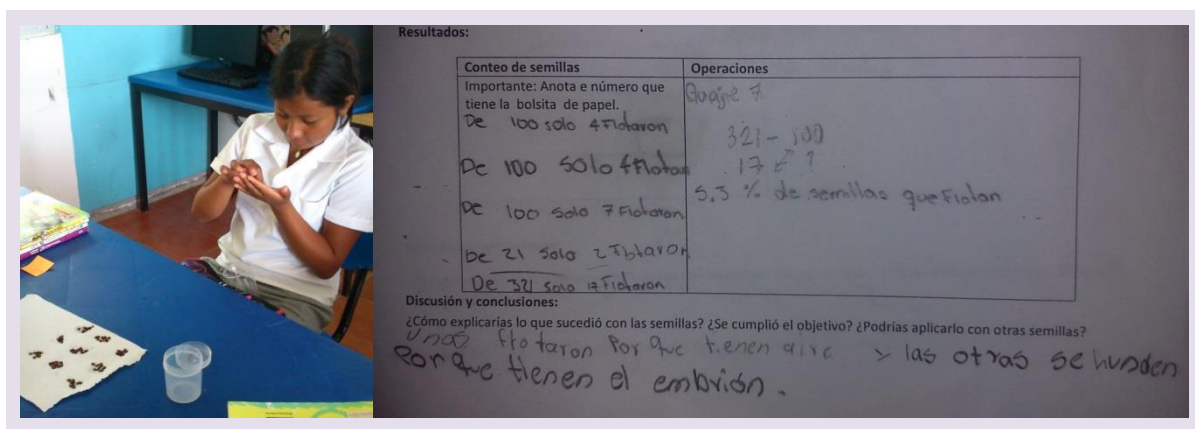 Resultados:
Conteo de semillas
Importante: Anota e número que
tiene la bolsita de papel.
De 100 solo 4 Flotaron
De 100 solo 4 Flotan
De 100 solo 7 Flotaron
De 21 solo 2 Flotaron
De 321 solo 17 Flotaron
Operaciones
Guaje 7
321 - 100
17 ?
5.3 % de semillas que Flotan
Discusión y conclusiones:
¿Cómo explicarías lo que sucedió con las semillas? ¿Se cumplió el objetivo? ¿Podrías aplicarlo con otras semillas?
Unas flotaron Por que tienen aire y las otras se hunden
Porque tienen el embrión.